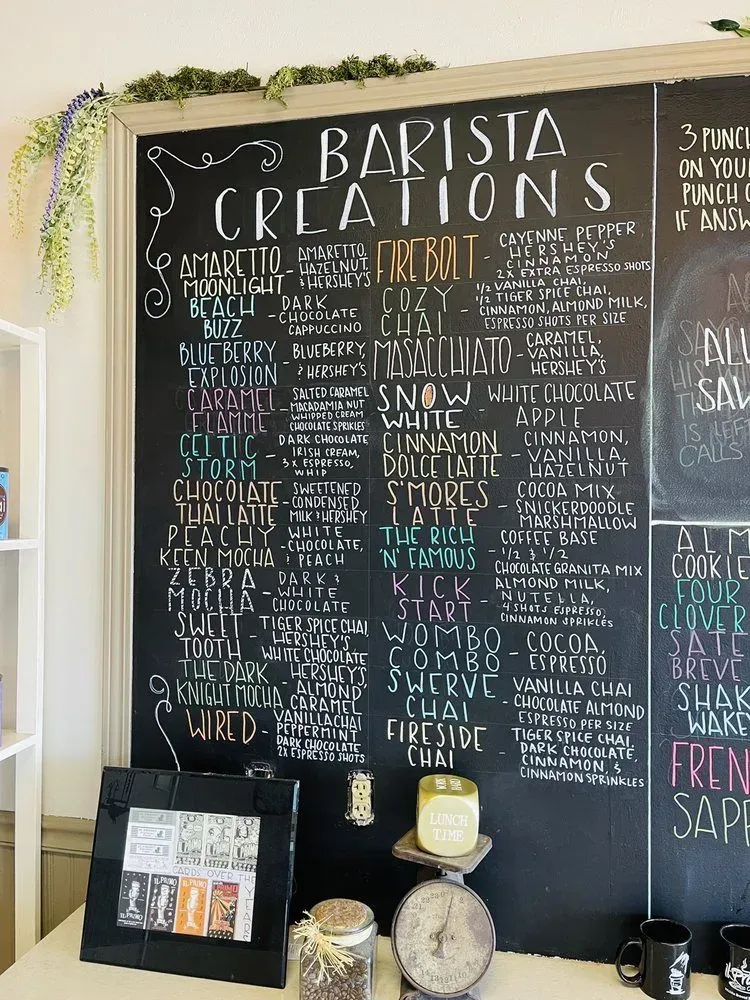 BARISTA
CREATIONS
AMARETTO
MOONLIGHT
- AMARETTO,
HAZELNUT,
& HERSHEY'S
BEACH
BUZZ
- DARK
CHOCOLATE
CAPPUCCINO
BLUEBERRY
EXPLOSION
- BLUEBERRY,
& HERSHEY'S
CARAMEL
FLAMME
- SALTED CARAMEL
MACADAMIA NUT
WHIPPED CREAM
CHOCOLATE SPRIKLES
CELTIC
STORM
- DARK CHOCOLATE
IRISH CREAM,
3X ESPRESSO,
WHIP
CHOCOLATE
THAI LATTE
- SWEETENED
CONDENSED
MILK & HERSHEY
PEACHY
KEEN MOCHA
- WHITE
CHOCOLATE,
& PEACH
ZEBRA
MOCHA
- DARK &
WHITE
CHOCOLATE
SWEET
TOOTH
- TIGER SPICE CHAI,
HERSHEY'S
WHITE CHOCOLATE
THE DARK
KNIGHT MOCHA
- HERSHEY'S,
ALMOND,
CARAMEL
WIRED
- VANILLA CHAI
PEPPERMINT
DARK CHOCOLATE
2X ESPRESSO SHOTS
FIREBOLT
- CAYENNE PEPPER,
HERSHEY'S
CINNAMON
2X EXTRA ESPRESSO SHOTS
COZY
CHAI
- 1/2 VANILLA CHAI,
1/2 TIGER SPICE CHAI,
CINNAMON, ALMOND MILK,
ESPRESSO SHOTS PER SIZE
MASACCHIATO
- CARAMEL,
VANILLA,
HERSHEY'S
SNOW
WHITE
- WHITE CHOCOLATE
APPLE
CINNAMON
DOLCE LATTE
- CINNAMON,
VANILLA,
HAZELNUT
S'MORES
LATTE
- COCOA MIX
SNICKERDOODLE
MARSHMALLOW
THE RICH
'N' FAMOUS
- COFFEE BASE
1/2 & 1/2
CHOCOLATE GRANITA MIX
KICK
START
- ALMOND MILK,
NUTELLA,
4 SHOTS ESPRESSO,
CINNAMON SPRIKLES
WOMBO
COMBO
- COCOA,
ESPRESSO
SWERVE
CHAI
- VANILLA CHAI
CHOCOLATE ALMOND
ESPRESSO PER SIZE
FIRESIDE
CHAI
- TIGER SPICE CHAI,
DARK CHOCOLATE,
CINNAMON, &
CINNAMON SPRINKLES
3 PUNC
ON YOU
PUNCH
IF ANSW
ALL
SAW
IS LEF
CALLS
ALM
COOKIE
FOUR
CLOVER
SATE
BREVE
SHAK
WAKE
FREN
SAPP
LUNCH
TIME
CARDS OVER THE
YEARS
IL PRIMO
IL PRIMO
IL PRIMO
IL PRIMO